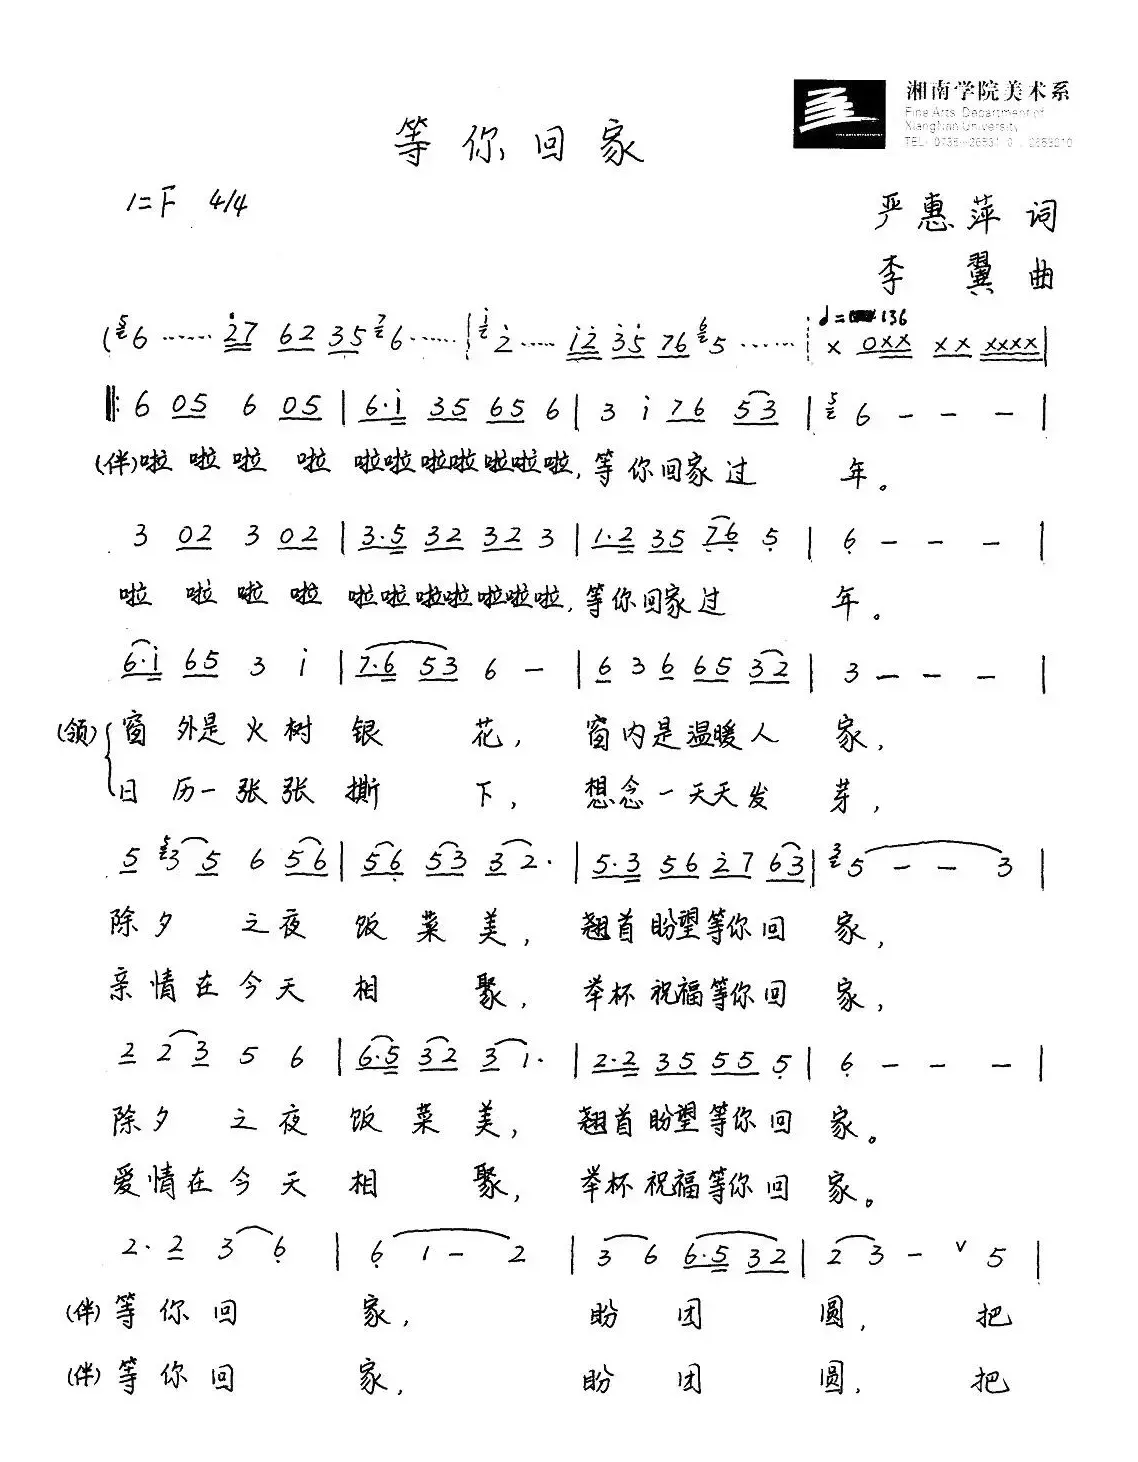 湘南学院美术系
Fine Arts Department of
XiangNan University
等你回家
1=F 4/4
严惠萍 词
李翼 曲
(6 ······ 27 62 35 6 ······ 2 ······ 12 35 76 5 ······ ♩= 136 x 0xx xx xxxx|
‖: 6 05 6 05 | 6·i 35 65 6 | 3 i 76 53 | 6 - - - |
(伴)啦 啦 啦 啦 啦啦啦啦啦啦啦,等你回家过 年。
3 02 3 02 | 3·5 32 32 3 | 1·2 35 76 5 | 6 - - - |
啦 啦 啦 啦 啦啦啦啦啦啦啦,等你回家过 年。
6·i 65 3 i | 7·6 53 6 - | 6 3 6 65 32 | 3 - - - |
(领) 窗 外是火树 银 花, 窗内是温暖人 家,
日 历一张张 撕 下, 想念一天天发 芽,
5 3 5 6 56 | 56 53 32· | 5·3 56 27 63 | 5 - - 3 |
除夕 之夜 饭 菜 美, 翘首盼望等你回 家,
亲情在今天 相 聚, 举杯祝福等你回 家,
2 2 3 5 6 | 6·5 32 31· | 2·2 35 55 5 | 6 - - - |
除夕 之夜 饭 菜 美, 翘首盼望等你回 家。
爱情在今天 相 聚, 举杯祝福等你回 家。
2·2 3 6 | 6 1 - 2 | 3 6 6·5 32 | 2 3 - v 5 |
(伴)等你回 家, 盼 团 圆, 把
(伴)等你回 家, 盼 团 圆, 把